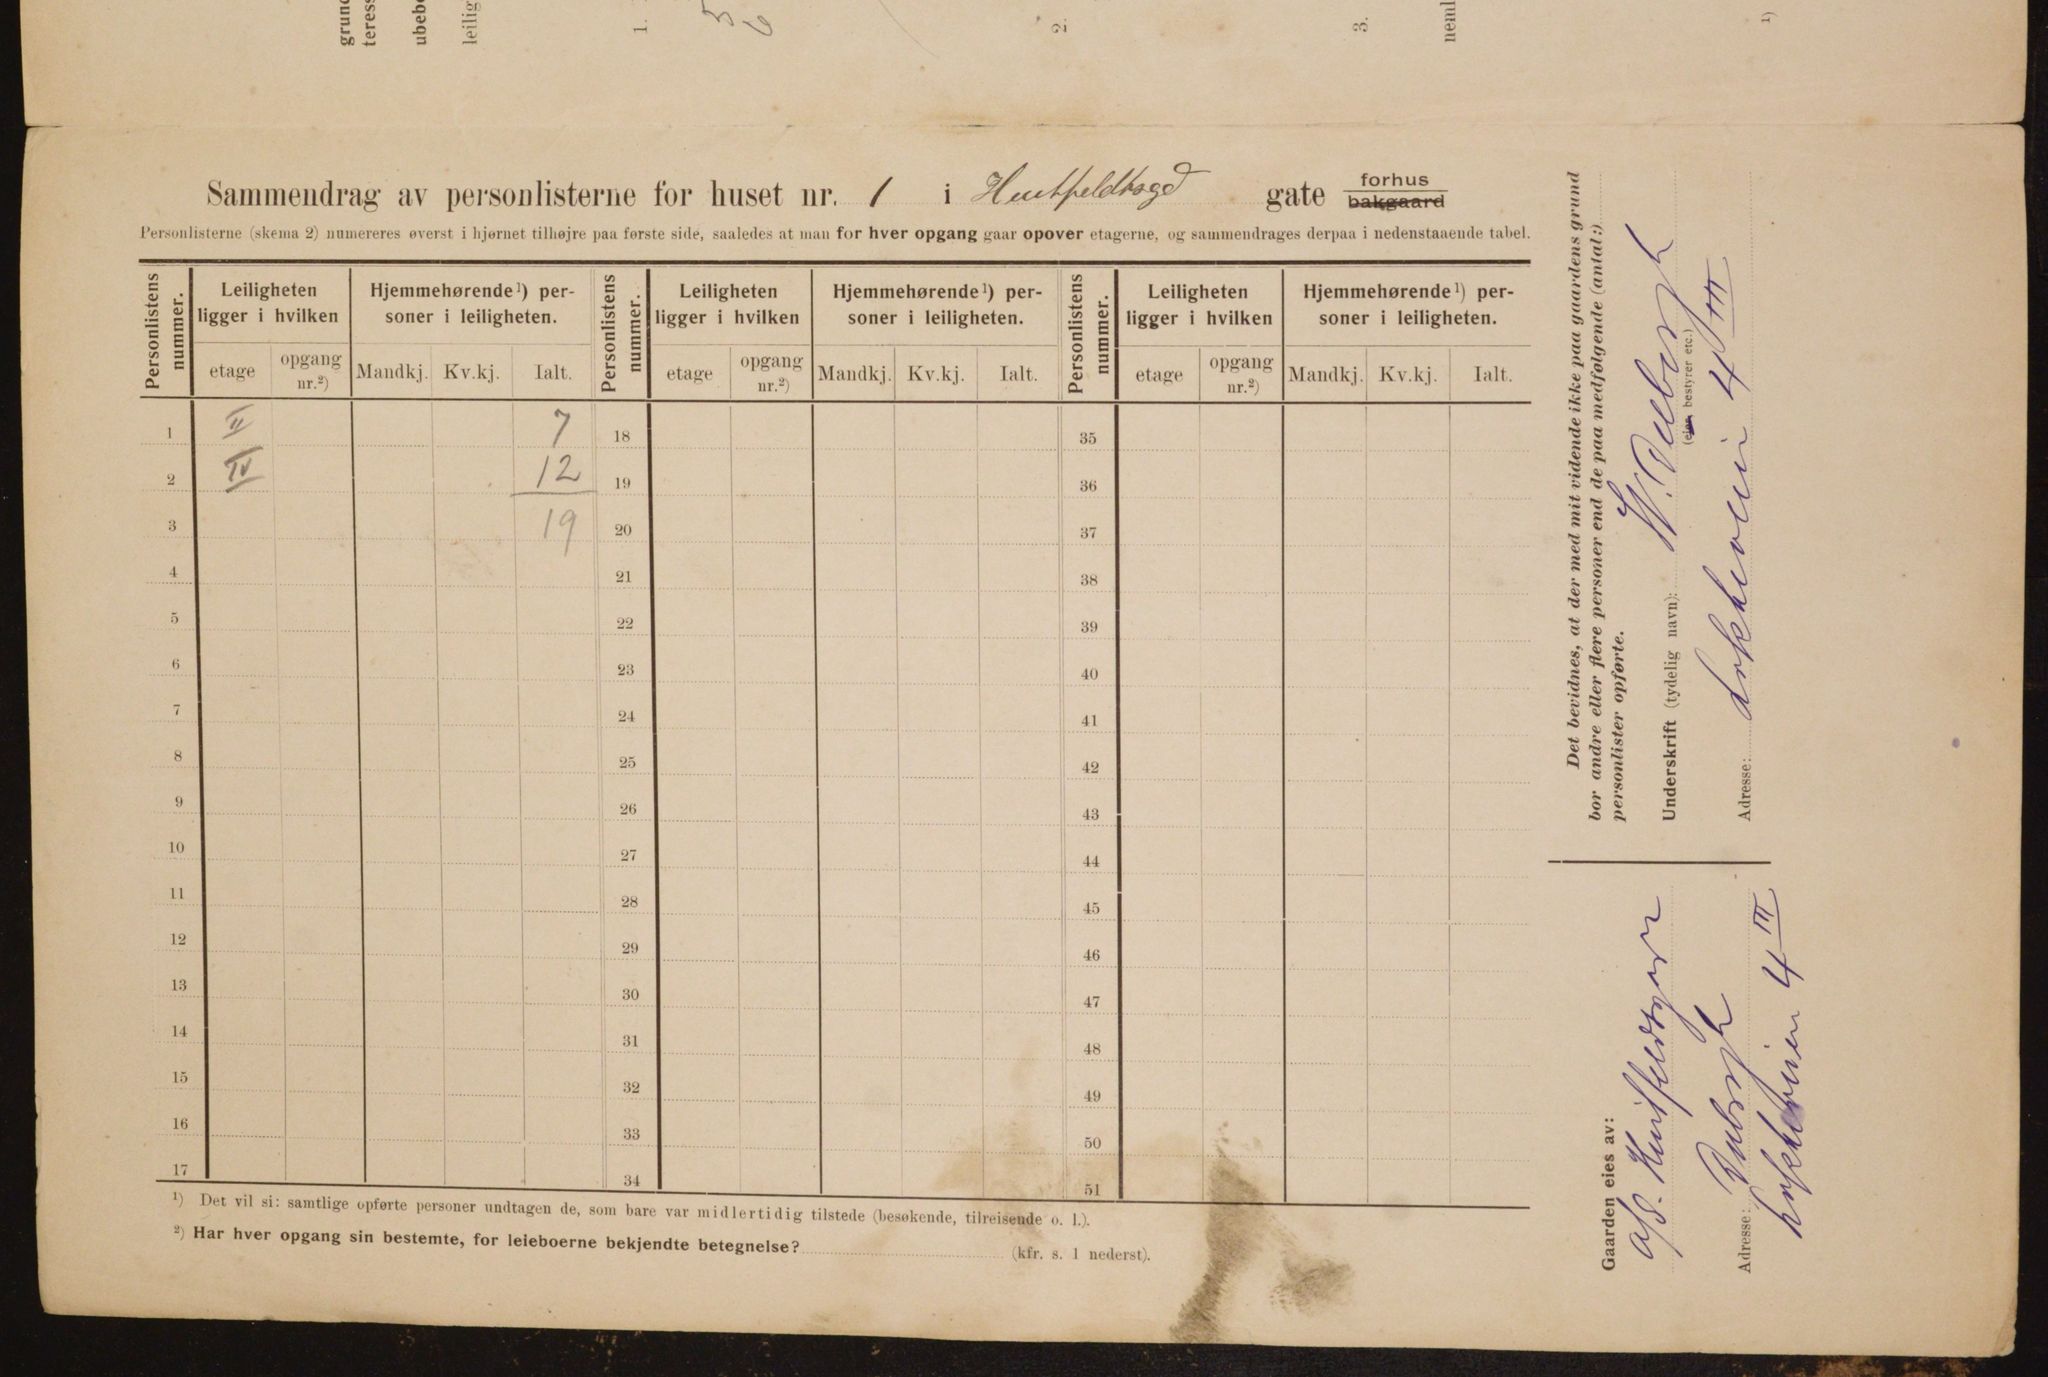 grund
teress
ubebo
leilig
1.
2.
3.
neml
1)
Sammendrag av personlisterne for huset nr. 1 i Huitfeldtsgd gate forhus bakgaard
Personlisterne (skema 2) numereres øverst i hjørnet tilhøjre paa første side, saaledes at man for hver opgang gaar opover etagerne, og sammendrages derpaa i nedenstaaende tabel.
Personlistens nummer. Leiligheten ligger i hvilken Hjemmehørende¹) personer i leiligheten. Personlistens nummer. Leiligheten ligger i hvilken Hjemmehørende¹) personer i leiligheten. Personlistens nummer. Leiligheten ligger i hvilken Hjemmehørende¹) personer i leiligheten.
etage opgang nr.²) Mandkj. Kv.kj. Ialt. etage opgang nr.²) Mandkj. Kv.kj. Ialt. etage opgang nr.²) Mandkj. Kv.kj. Ialt.
1 II 7 18 35
2 IV 12 19 36
3 19 20 37
4 21 38
5 22 39
6 23 40
7 24 41
8 25 42
9 26 43
10 27 44
11 28 45
12 29 46
13 30 47
14 31 48
15 32 49
16 33 50
17 34 51
¹) Det vil si: samtlige opførte personer undtagen de, som bare var midlertidig tilstede (besøkende, tilreisende o. l.).
²) Har hver opgang sin bestemte, for leieboerne bekjendte betegnelse? (kfr. s. 1 nederst).
Det bevidnes, at der med mit vidende ikke paa gaardens grund
bor andre eller flere personer end de paa medfølgende (antal:)
personlister opførte.
Underskrift (tydelig navn): W. Duborgh
(eier bestyrer etc.)
Adresse: Løkkeveien 4 III
Gaarden eies av:
A/S. Huitfeldtsgaten
Duborgh
Adresse: Løkkeveien 4 III